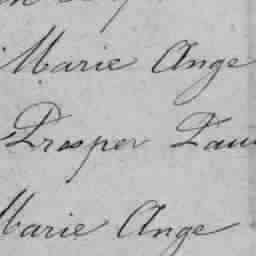 Marie Ange
Prosper
Marie Ange